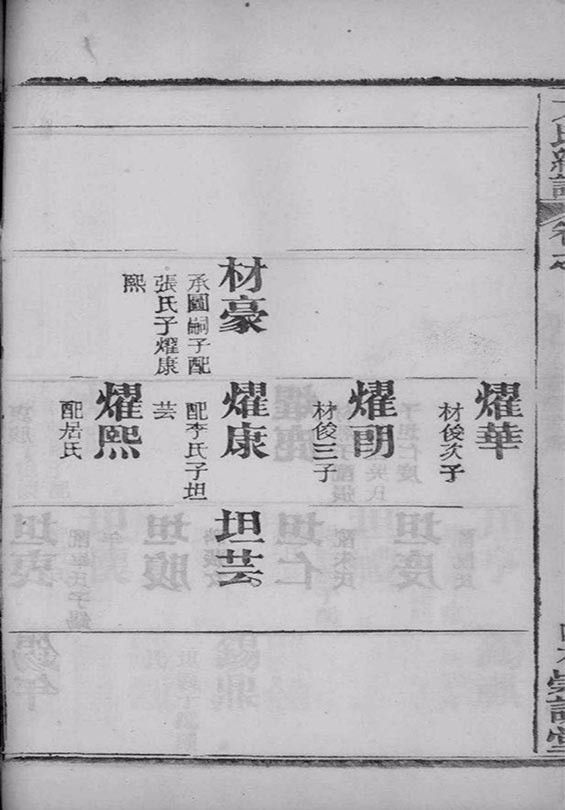 材豪
承圖嗣子配
張氏子燿康
熙
燿華
材俊次子
燿朙
材俊三子
燿康
配李氏子坦
芸
燿熙
配居氏
坦芸
氏統譜
卷
崇譜堂